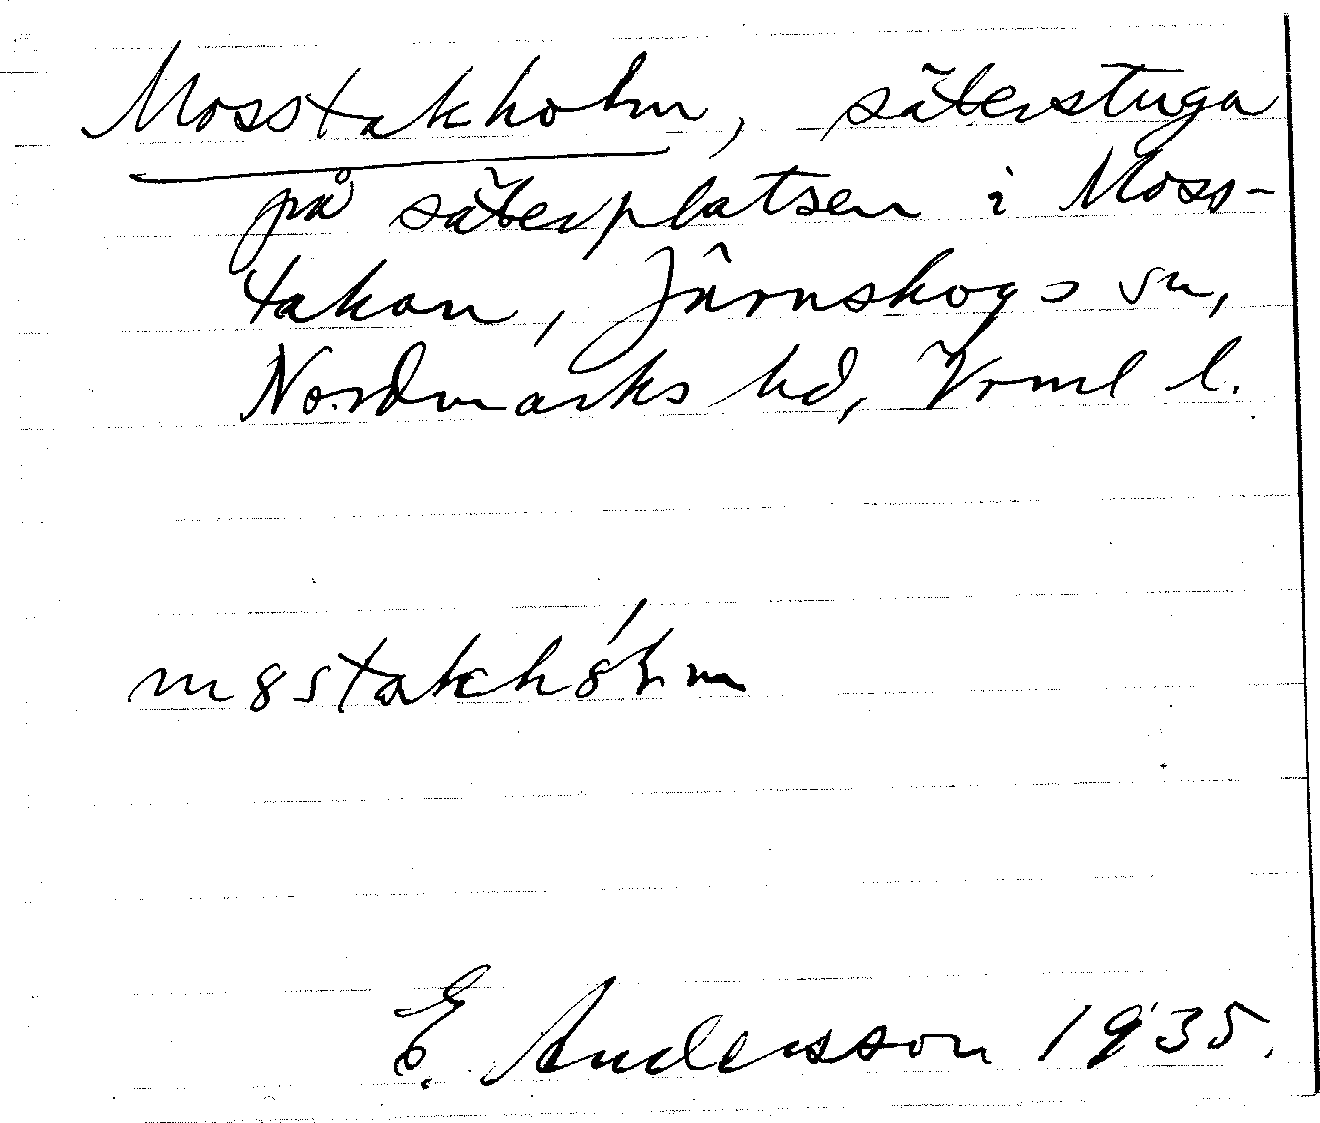 Mosstakholm, säterstuga
på säterplatsen i Moss-
takan, Järnskogs sn,
Nordmarks hd, Vrml l.
E. Andersson 1935.